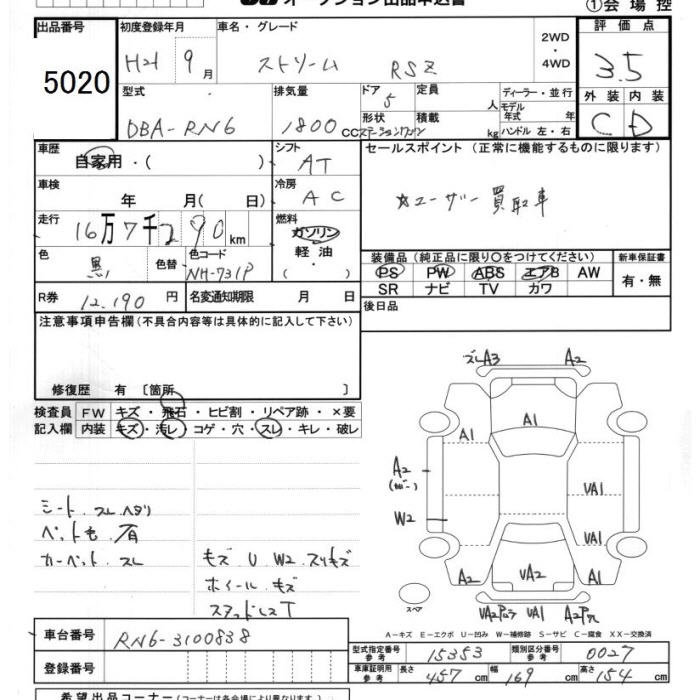 オークション出品申込書
①会場控
出品番号 5020
初度登録年月 H21 9月
車名・グレード ストリーム RSZ
2WD・4WD
評価点 3.5
外装 内装 C D
型式 DBA-RN6
排気量 1800 CC
ドア 5
形状 ステーションワゴン
定員 人
積載 kg
ディーラー・並行
モデル年式 年式
ハンドル 左・右
車歴 自家用・( )
シフト AT
セールスポイント (正常に機能するものに限ります)
☆ユーザー買取車
車検 年 月( 日)
冷房 AC
走行 16万7千290 km
燃料 ガソリン 軽油・( )
色 黒 色替 色コード NH-731P
装備品 (純正品に限り○をつけてください)
PS PW ABS エアB AW
SR ナビ TV カワ
新車保証書 有・無
R券 12,190 円
名変通知期限 月 日
後日品
注意事項申告欄 (不具合内容等は具体的に記入して下さい)
修復歴 有 〔箇所 〕
検査員記入欄
FW キズ・飛石・ヒビ割・リペア跡・×要
内装 キズ・汚レ・コゲ・穴・スレ・キレ・破レ
シート スレ ヘタリ
ペット毛 有
カーペット スレ
モズ U W2 スリキズ
ホイール キズ
スタッドレスT
ズレA3 A2
A1 A1
A2
(カバー)
W2
UA1
UA1
A2 UA2 A1
スペア
UA2 UA1 A2
A-キズ E-エクボ U-凹み W-補修跡 S-サビ C-腐食 XX-交換済
車台番号 RN6-3100838
登録番号
型式指定番号 参考 15353
類別区分番号 参考 0027
車庫証明用 参考 長さ 457 cm 幅 169 cm 高さ 154 cm
希望出品コーナー (コーナーは各会場により異なります)